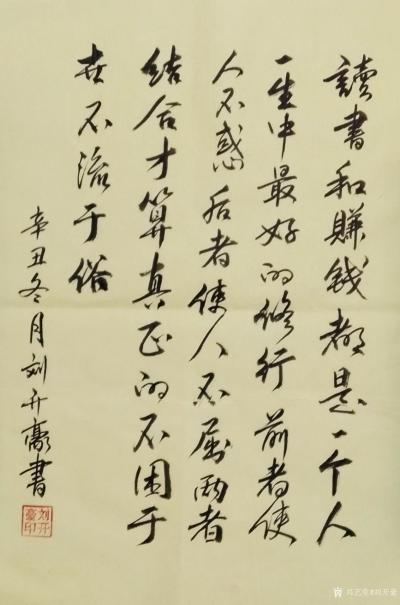 讀書和賺钱都是一个人
一生中最好的修行前者使
人不惑后者使人不屈两者
结合才算真正的不困于
世不流于俗
辛丑冬月刘开豪書
刘开豪印